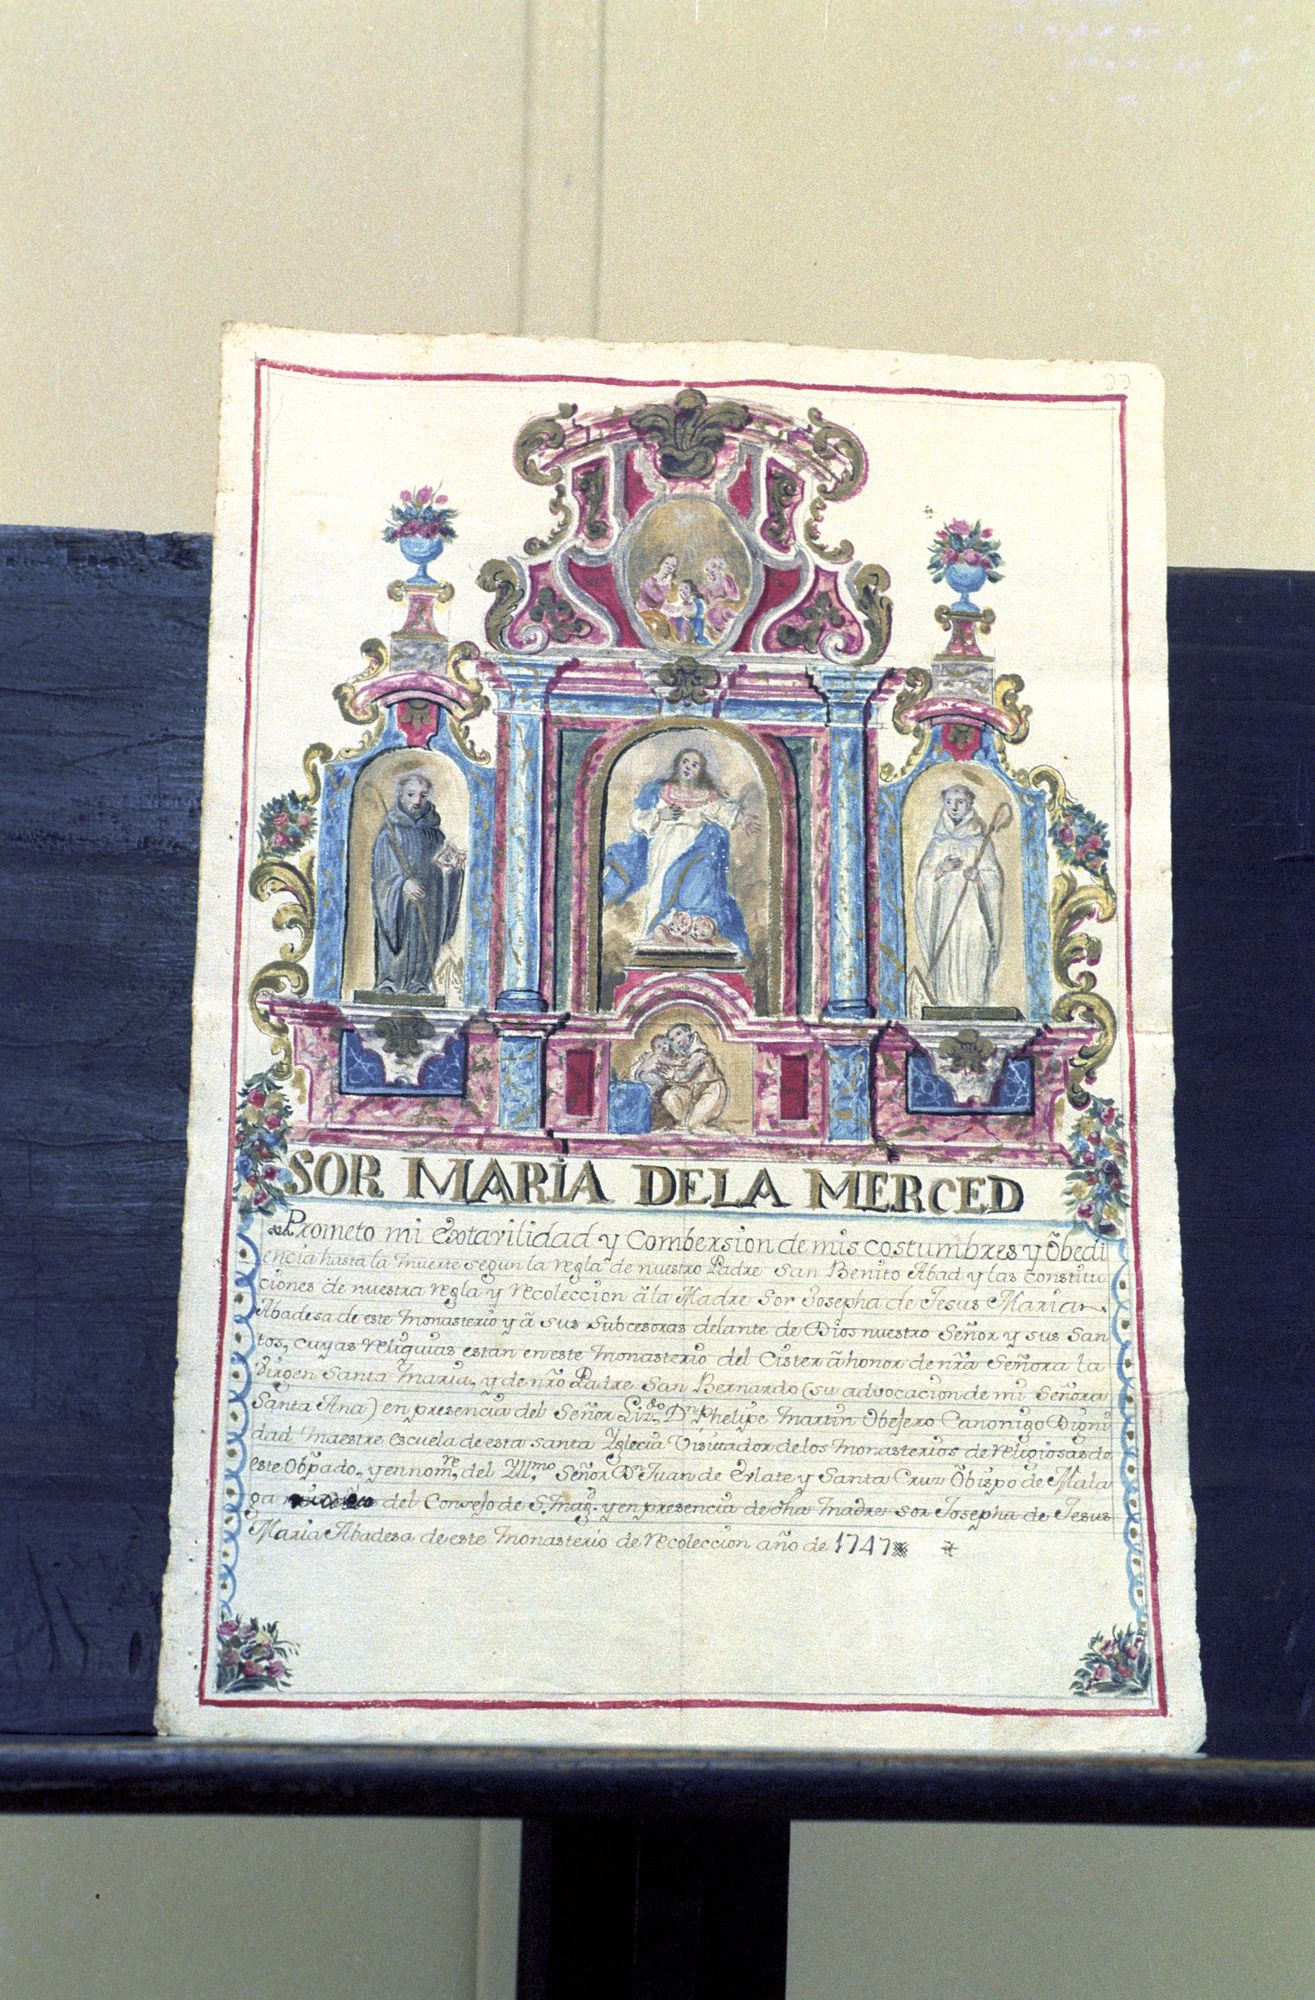 SOR MARÍA DELA MERCED
Prometo mi Extavilidad y Combersion de mis costumbres y õbedi
encia hasta la muerte segun la regla de nuestro Padre San Benito Abad y las constitu
ciones de nuestra regla y recoleccion â la Madre Sor Josepha de Jesus Maria
Abadesa de este Monasterio y â sus Subcesoras delante de Dios nuestro Señor y sus San
tos, cuyas reliquias estan en este Monasterio del Cister â honor de nrã Señora la
Virgen Santa Maria, y de nrõ Padre San Bernardo (su advocacion de mi Señora
Santa Ana) en presencia del Señor Liz.do Dn Phelipe Martin Obejero Canonigo Digni
dad Maestre escuela de esta santa Yglecia Visitador de los Monasterios de religiosas de
este Obpado, y en nomre. del Yll.mo Señor Dn Juan de Erlate y Santa Cruz Õbispo de Mala
ga del Consejo de S. Mag.d y en presencia de dha madre sor Josepha de Jesus
Maria Abadesa de este Monasterio de recoleccion año de 1747